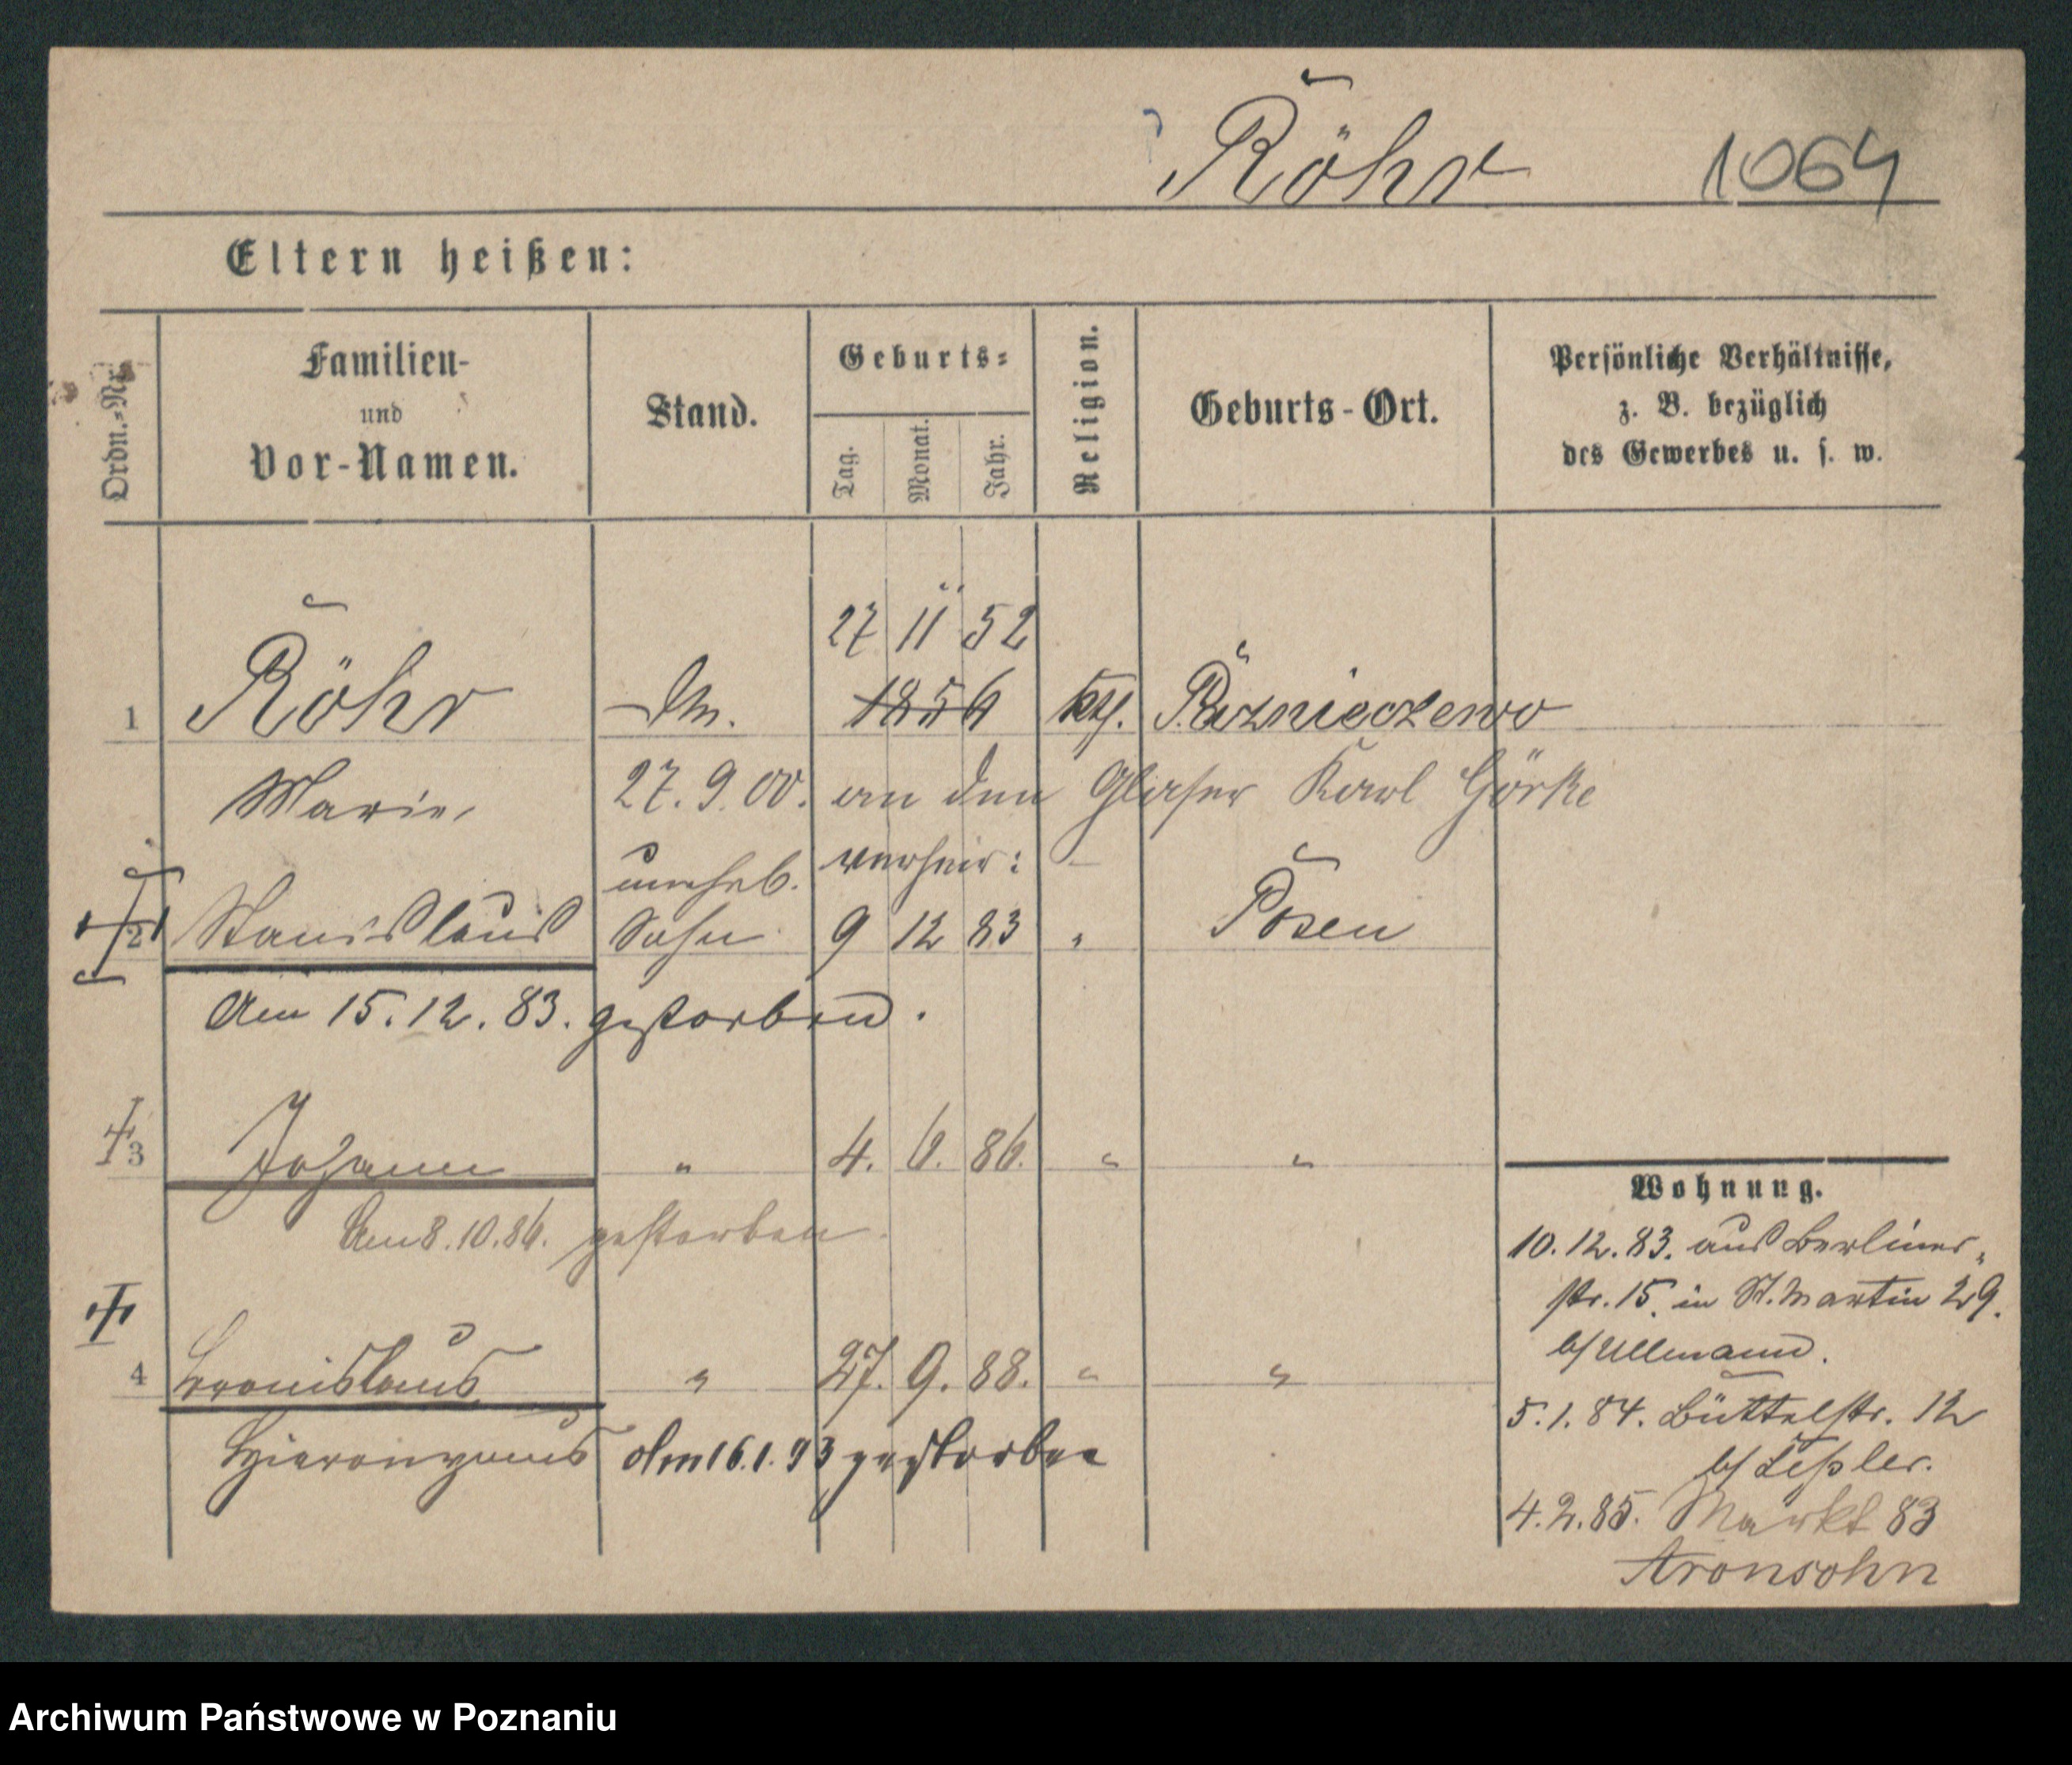 Röhr 1064
Eltern heißen:
Ordn.-Nr.
Familien-
und
Vor-Namen.
Stand.
Geburts-
Tag.
Monat.
Jahr.
Religion.
Geburts-Ort.
Persönliche Verhältnisse,
z. B. bezüglich
des Gewerbes u. s. w.
27 11 52
1 Röhr 1856 kth.
Marie, 27. 9. 00. an den Glaser Karl Görke
unehel. verheir:
2 Stanislaus Sohn 9 12 83 " Posen
Am 15. 12. 83. gestorben.
3 Johann " 4. 6. 86. " "
Am 8. 10. 86. gestorben
4 Bronislaus " 27. 9. 88. " "
Hieronymus Am 16. 1. 93 gestorben
Wohnung.
10. 12. 83. aus Berliner-
str. 15. in St. Martin 29.
b/ Ullmann.
5. 1. 84. Büttelstr. 12
b/ Leßler.
4. 2. 85. Markt 83
Aronsohn
Archiwum Państwowe w Poznaniu